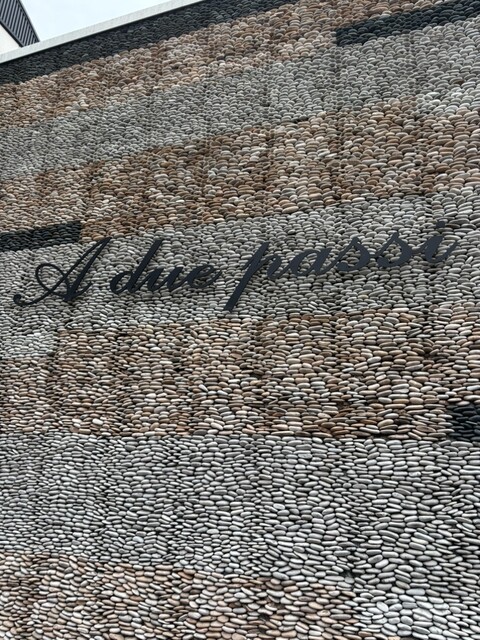 A due passi